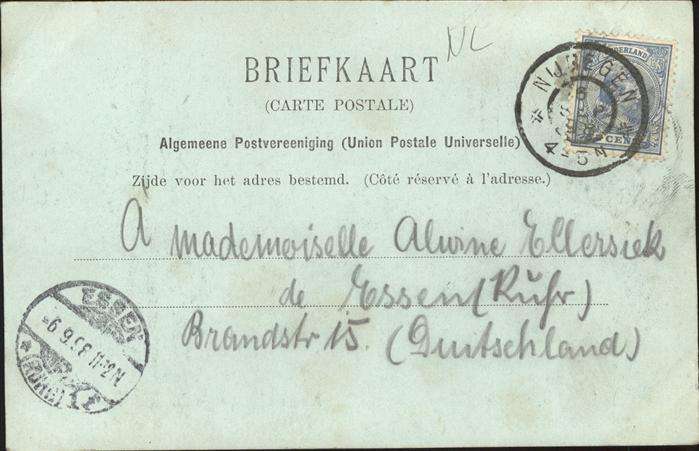 NL
BRIEFKAART
(CARTE POSTALE)
Algemeene Postvereeniging (Union Postale Universelle)
Zijde voor het adres bestemd. (Côté réservé à l'adresse.)
NEDERLAND
CENT
NIJMEGEN
4-5N
A Mademoiselle Alwine Ellersiek
de Essen (Ruhr)
Brandstr 15. (Duitschland)
ESSEN
(RUHR)